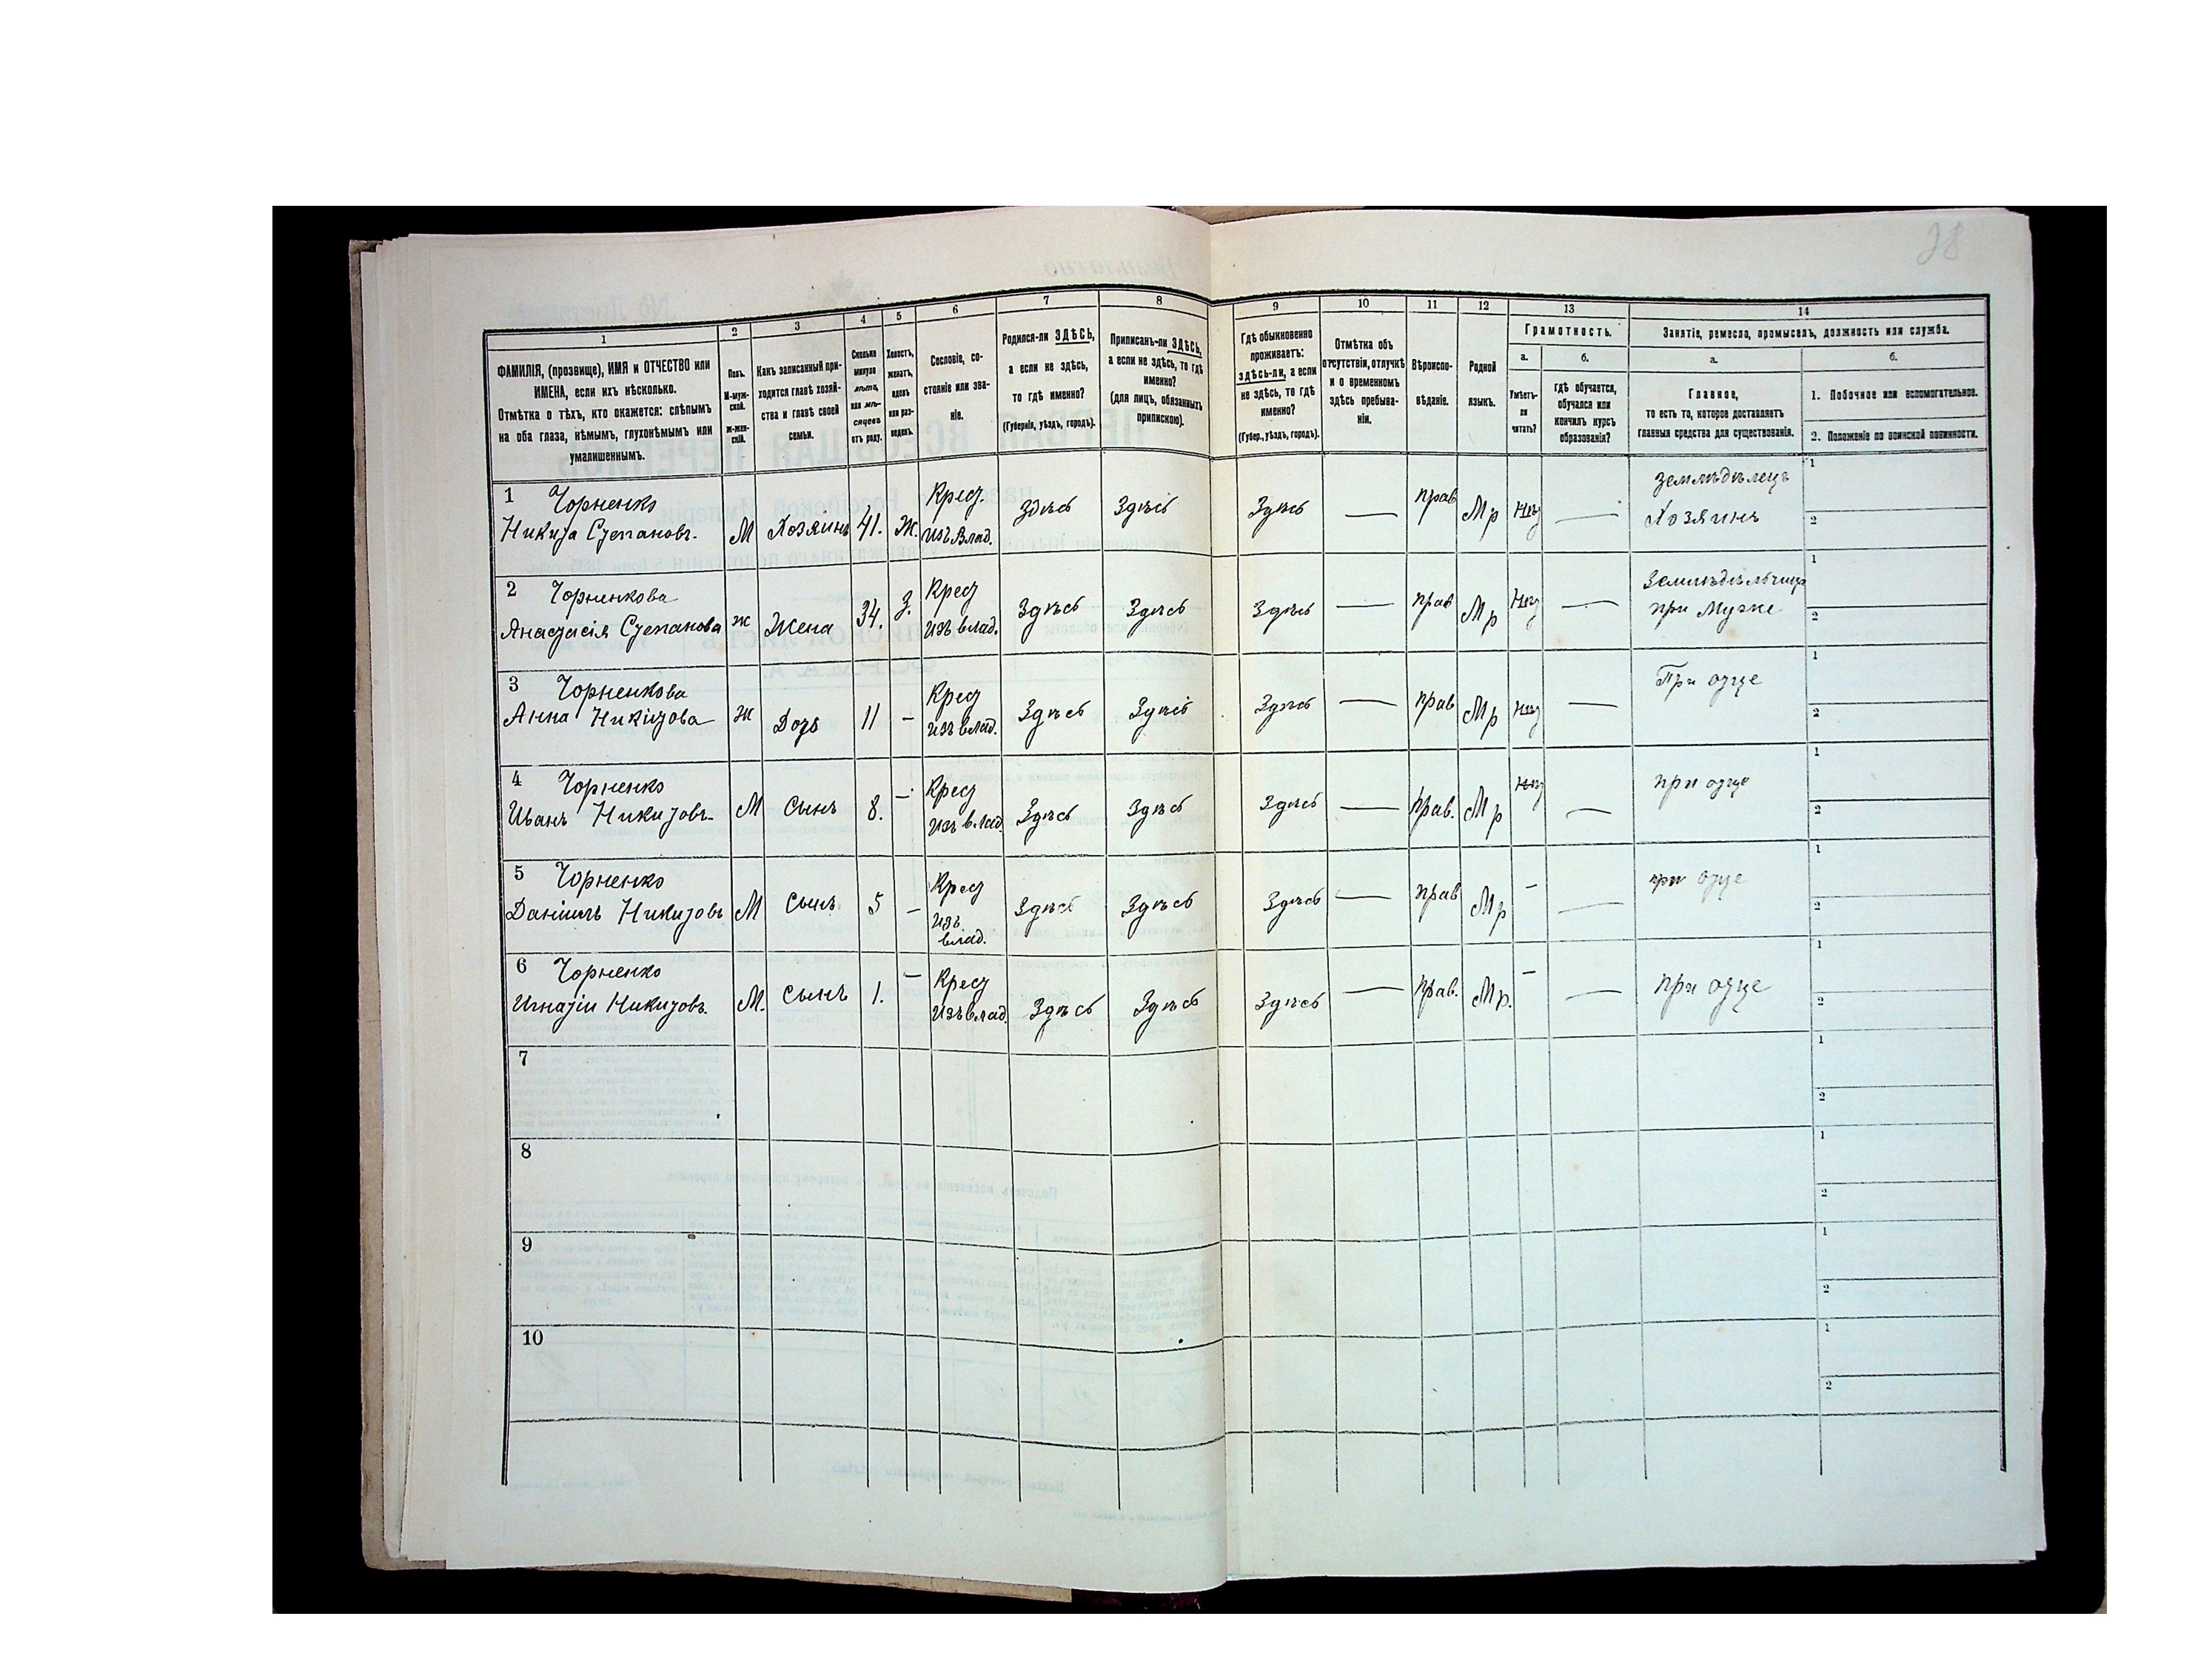 28
1
2
3
4
5
6
7
8
9
10
11
12
13
14
ФАМИЛІЯ, (прозвище), ИМЯ и ОТЧЕСТВО или
ИМЕНА, если ихъ нѣсколько.
Отмѣтка о тѣхъ, кто окажется: слѣпымъ
на оба глаза, нѣмымъ, глухонѣмымъ или
умалишеннымъ.
Полъ.
М-муж-
ской.
ж-жен-
скій.
Какъ записанный при-
ходится главѣ хозяй-
ства и главѣ своей
семьи.
Сколько
минуло
лѣтъ,
или мѣ-
сяцевъ
отъ роду.
Холостъ,
женатъ,
вдовъ
или раз-
веденъ.
Сословіе, со-
стояніе или зва-
ніе.
Родился-ли ЗДѢСЬ,
а если не здѣсь,
то гдѣ именно?
(Губернія, уѣздъ, городъ).
Приписанъ-ли ЗДѢСЬ,
а если не здѣсь, то гдѣ
именно?
(для лицъ, обязанныхъ
припискою).
Гдѣ обыкновенно
проживаетъ:
здѣсь-ли, а если
не здѣсь, то гдѣ
именно?
(Губер., уѣздъ, городъ).
Отмѣтка объ
отсутствіи, отлучкѣ
и о временномъ
здѣсь пребыва-
ніи.
Вѣроиспо-
вѣданіе.
Родной
языкъ.
Грамотность.
а.
Умѣетъ-
ли
читать?
б.
гдѣ обучается,
обучался или
кончилъ курсъ
образованія?
Занятіе, ремесло, промыселъ, должность или служба.
а.
Главное,
то есть то, которое доставляетъ
главныя средства для существованія.
б.
1. Побочное или вспомогательное.
2. Положеніе по воинской повинности.
1 Чорненко Крест. прав земледѣлецъ 1
Никита Степановъ. М Хозяинъ 41. Ж. изъ Влад. Здѣсь Здѣсь Здѣсь — Мр Нѣт — Хозяинъ 2
2 Чорненкова Крест прав Земледѣльчица 1
Анастасія Степанова ж Жена 34. З. изъ влад. Здѣсь Здѣсь Здѣсь — Мр Нѣт — при Мужѣ 2
3 Чорненкова Крест прав При отце 1
Анна Никитова ж Доть 11 — изъ влад. Здѣсь Здѣсь Здѣсь — Мр Нѣт — 2
4 Чорненко Крест Нѣт при отце 1
Иванъ Никитовъ М Сынъ 8. — изъ влад. Здѣсь Здѣсь Здѣсь — прав. Мр — 2
5 Чорненко Крест прав — при отце 1
Даніилъ Никитовъ М Сынъ 5 — изъ влад. Здѣсь Здѣсь Здѣсь — Мр — 2
6 Чорненко — Крест — при отце 1
Игнатіи Никитовъ. М. Сынъ 1. изъ влад. Здѣсь Здѣсь Здѣсь — прав. Мр. — 2
7 1
2
8 1
2
9 1
2
10 1
2